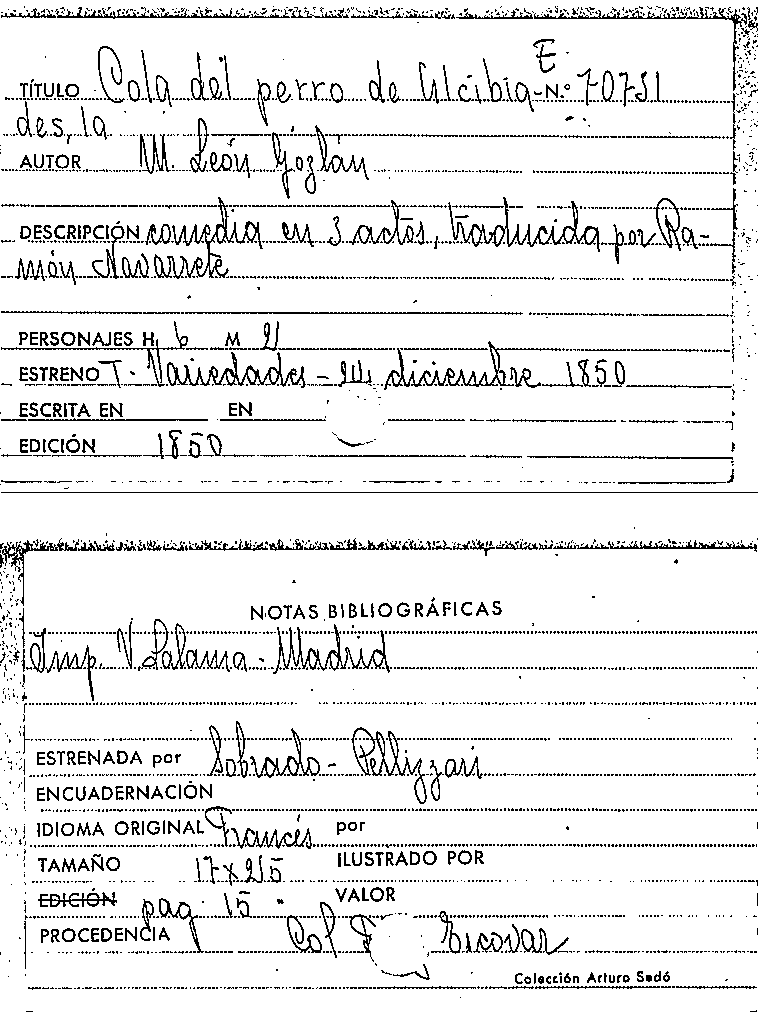 E.
TÍTULO Cola del perro de Alcibia- N.º 70751
des, la
AUTOR M. León Gozlán
DESCRIPCIÓN comedia en 3 actos, traducida por Ra-
món Navarrete
PERSONAJES H. 6 M 2
ESTRENO T. Variedades - 24 diciembre 1850
ESCRITA EN EN
EDICIÓN 1850
NOTAS BIBLIOGRÁFICAS
Imp. V. Lalama - Madrid
ESTRENADA por Sobrado - Pellizzari
ENCUADERNACIÓN
IDIOMA ORIGINAL Francés por
TAMAÑO ILUSTRADO POR
EDICIÓN pag. 15 VALOR
PROCEDENCIA Col Escovar
Colección Arturo Sedó